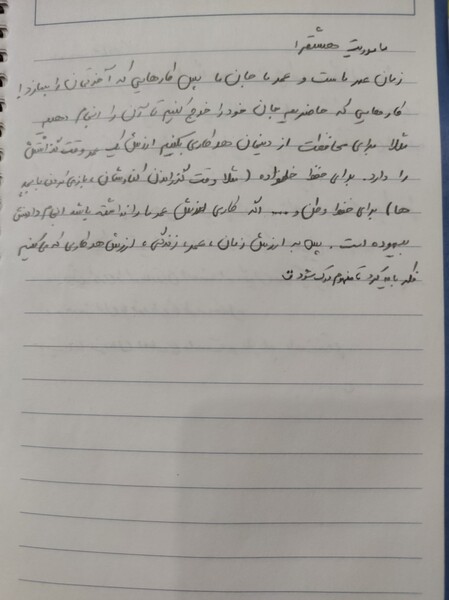 ماموریت هشتم را
زمان عمر ماست و عمر ما جان ما پس کارهایی که آخرتمان را بسازد !
کارهایی که حاضریم جان خود را خرج کنیم تا آن را انجام دهیم
مثلا برای محافظت از دینمان هر کاری بکنیم ارزش یک عمر وقت گذاشتن
را دارد. برای حفظ خانواده ( مثلا وقت گذراندن کنارشان، بازی کردن با بچه
ها) برای حفظ وطن و ... اگه کاری ارزش عمر ما را نداشته باشد انجام دادنش
بیهوده است. پس به ارزش زمان، عمر، زندگی، ارزش هر کاری که می‌کنیم
فکر باید کرد تا مفهوم درک شود